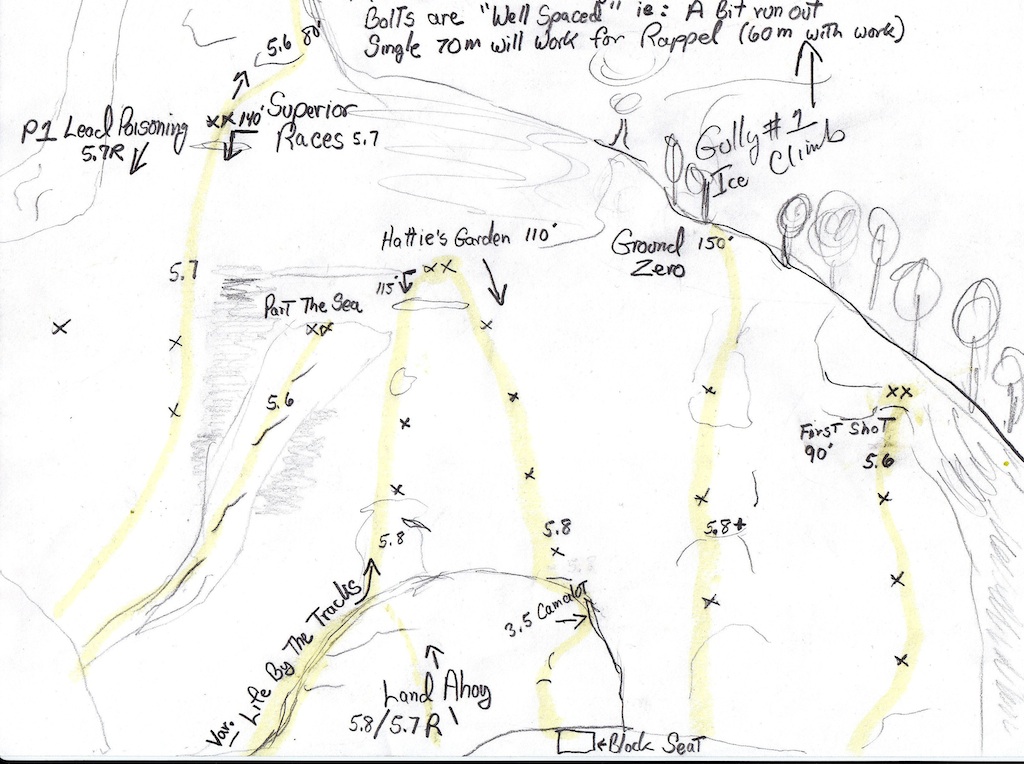 Bolts are "Well Spaced" ie: A Bit run out
Single 70m will work for Rappel (60m with work)
5.6 80'
P1 Lead Poisoning
5.7R
xx 140'
Superior
Races 5.7
Gully #1
Ice Climb
Hattie's Garden 110'
xx
115'
Ground 150'
Zero
5.7
Part The Sea
xx
5.6
xx
First Shot
90'
5.6
5.8
5.8
5.8+
3.5 Camalot
Var. Life By The Tracks
Land Ahoy
5.8/5.7R
Block Seat